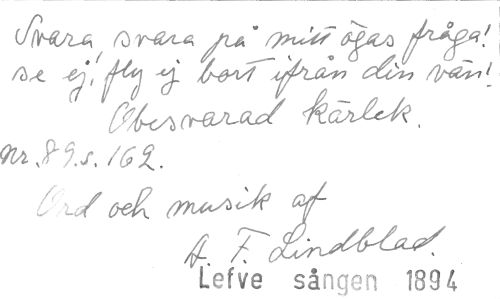 Svara, svara på mitt ögas fråga!
se ej, fly ej bort ifrån din vän!
Obesvarad kärlek.
Nr. 89. s. 162.
Ord och musik af
A. F. Lindblad.
Lefve sången 1894